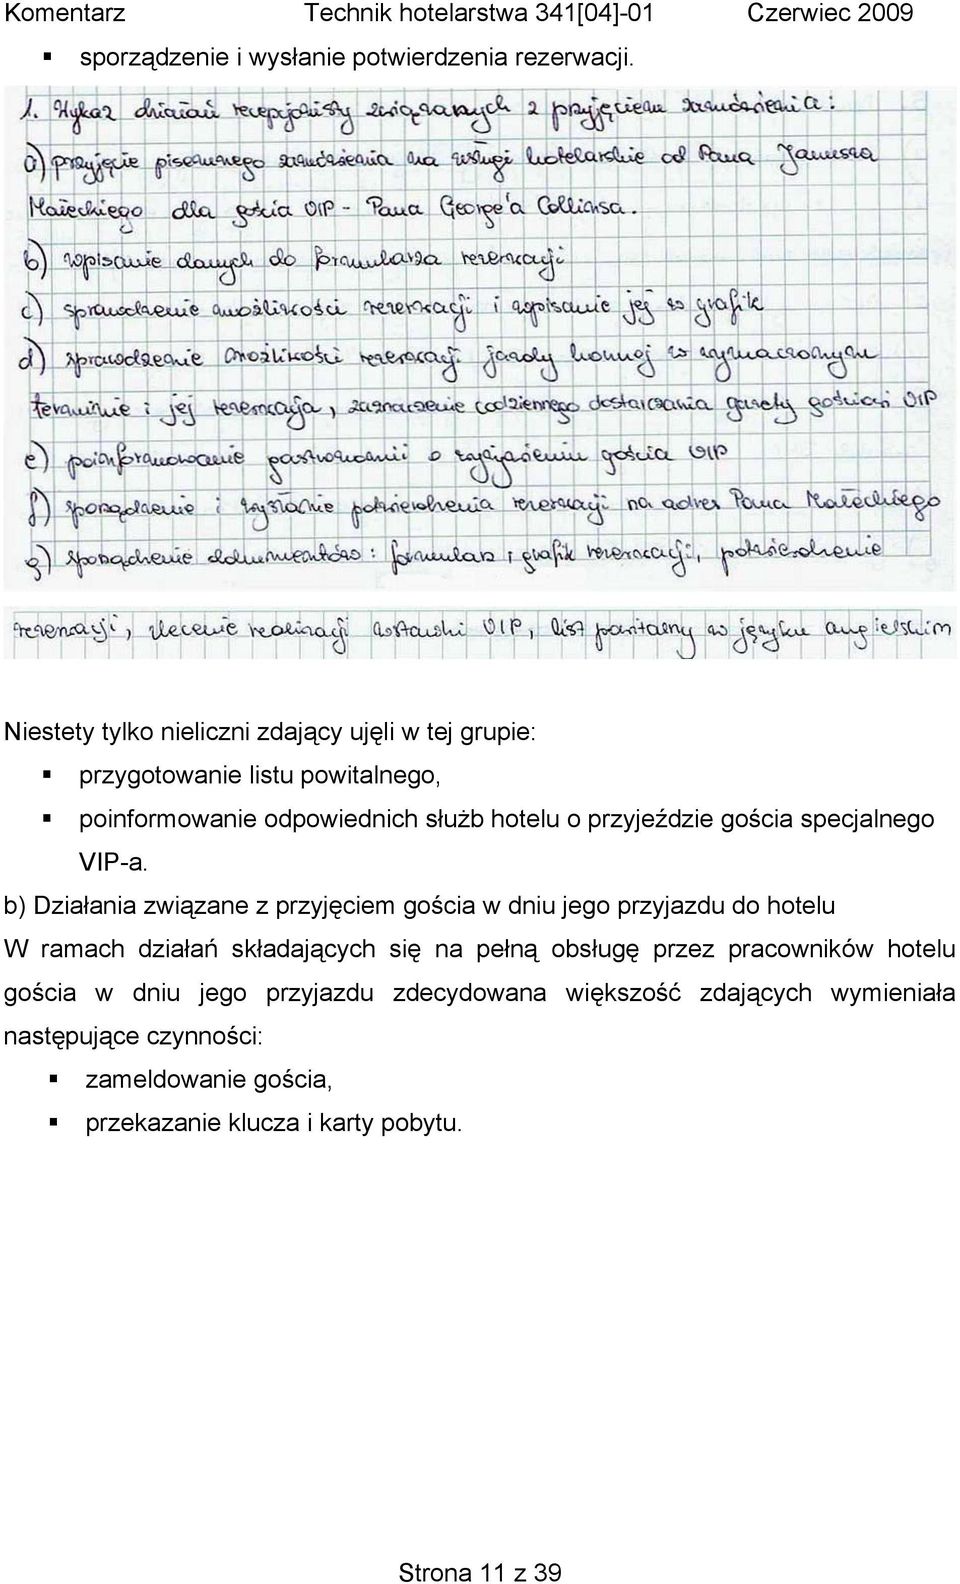 Komentarz Technik hotelarstwa 341[04]-01 Czerwiec 2009
▪ sporządzenie i wysłanie potwierdzenia rezerwacji.
1. Wykaz działań recepcjonisty związanych z przyjęciem zamówienia:
a) przyjęcie pisemnego zamówienia na usługi hotelarskie od Pana Janusza
Małeckiego dla gościa VIP - Pana George'a Collinsa.
b) wpisanie danych do formularza rezerwacji
c) sprawdzenie możliwości rezerwacji i wpisanie jej w grafik
d) sprawdzenie możliwości rezerwacji jazdy konnej w wyznaczonym
terminie i jej rezerwacja, zaznaczenie codziennego dostarczania gazety gościowi VIP
e) poinformowanie gastronomii o wyżywieniu gościa VIP
f) sporządzenie i wysłanie potwierdzenia rezerwacji na adres Pana Małeckiego
g) sporządzenie dokumentów: formularz i grafik rezerwacji, potwierdzenie
rezerwacji, zlecenie realizacji wstawki VIP, list powitalny w języku angielskim
Niestety tylko nieliczni zdający ujęli w tej grupie:
▪ przygotowanie listu powitalnego,
▪ poinformowanie odpowiednich służb hotelu o przyjeździe gościa specjalnego
VIP-a.
b) Działania związane z przyjęciem gościa w dniu jego przyjazdu do hotelu
W ramach działań składających się na pełną obsługę przez pracowników hotelu
gościa w dniu jego przyjazdu zdecydowana większość zdających wymieniała
następujące czynności:
▪ zameldowanie gościa,
▪ przekazanie klucza i karty pobytu.
Strona 11 z 39